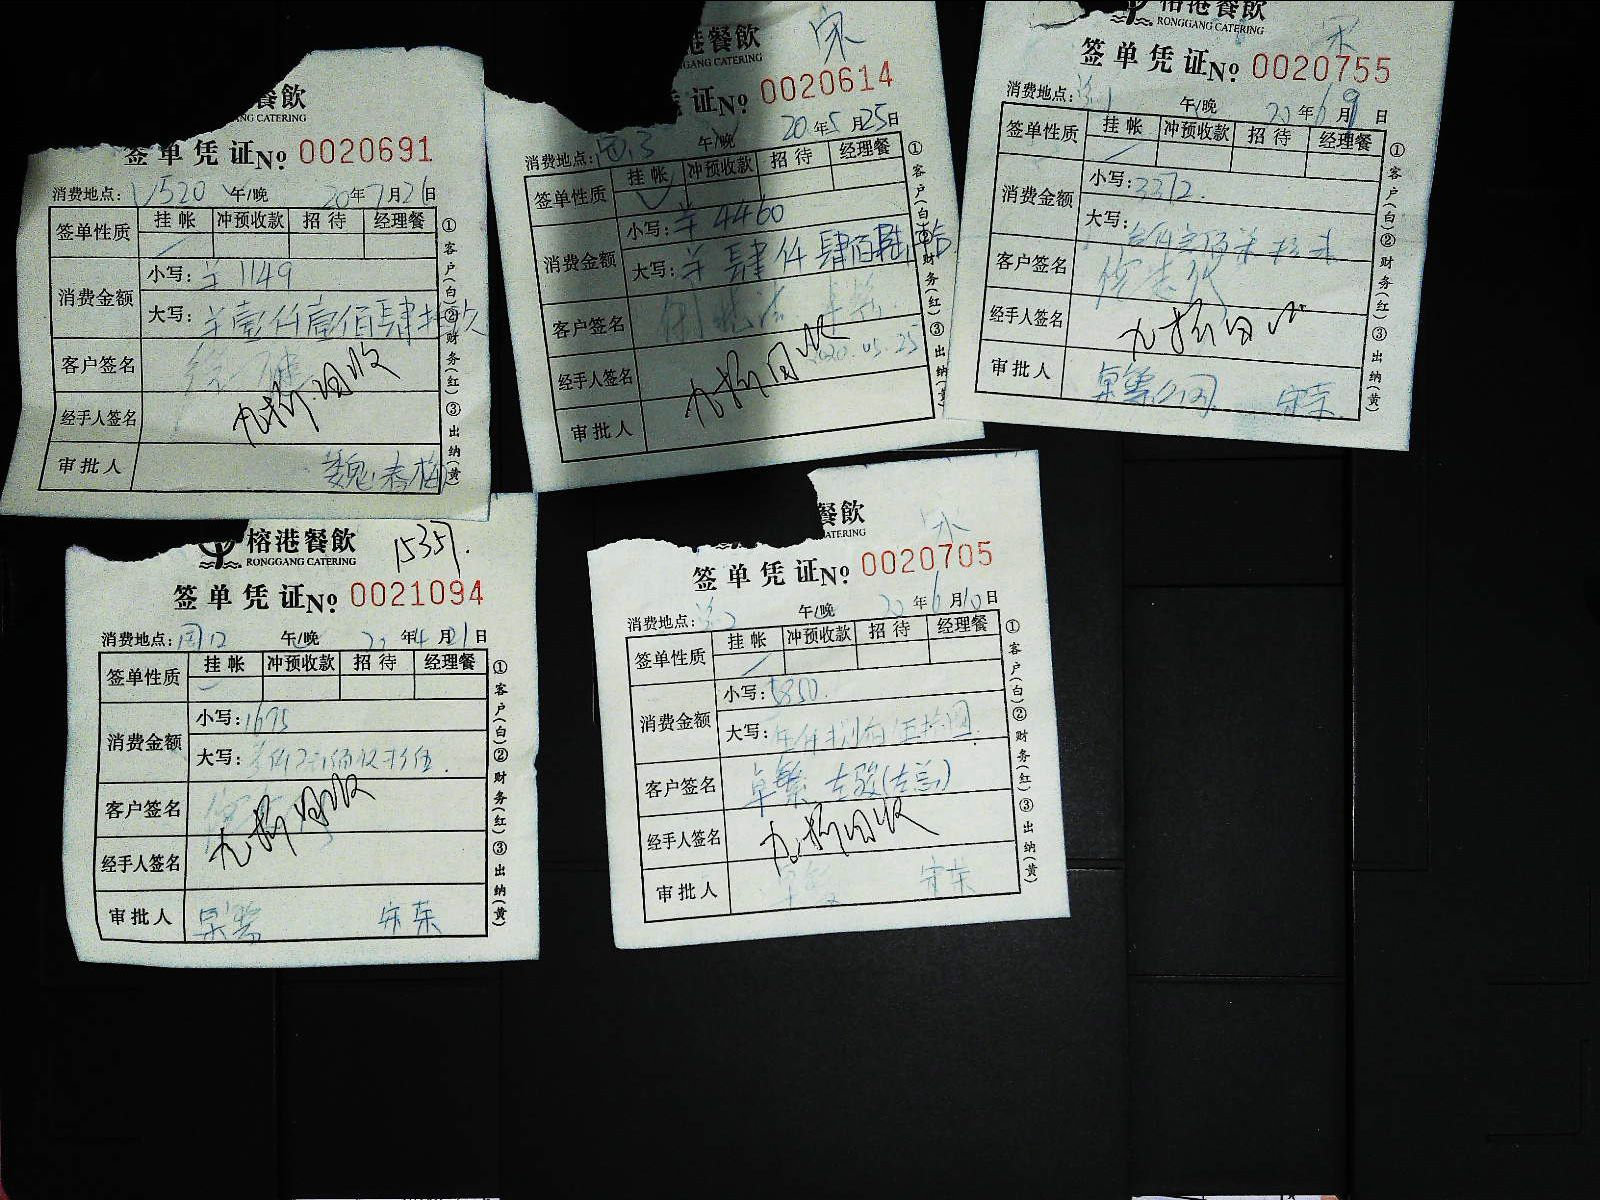 餐飲
NG CATERING
签单凭证No 0020691
消费地点: V520 午/晚 20年7月26日
签单性质 挂帐 冲预收款 招待 经理餐
消费金额
小写: 羊1149
大写: 羊壹仟壹佰肆拾玖
客户签名
九折回收
经手人签名
审批人 魏春梅
①客户(白)②财务(红)③出纳(黄)
港餐飲 宋
GANG CATERING
凭证No 0020614
消费地点: 午/晚 20年5月25日
签单性质 挂帐 冲预收款 招待 经理餐
消费金额
小写: 羊4460
大写: 羊肆仟肆佰陆拾
客户签名
2020.05.25
经手人签名 九折回收
审批人
①客户(白)②财务(红)③出纳(黄)
榕港餐飲
RONGGANG CATERING
签单凭证No 0020755
消费地点: 午/晚 20年6月9日
签单性质 挂帐 冲预收款 招待 经理餐
消费金额
小写: 3372.
大写:
客户签名
经手人签名 九折回收
审批人 宋荣
①客户(白)②财务(红)③出纳(黄)
榕港餐飲
RONGGANG CATERING
签单凭证No 0021094
消费地点: 午/晚 年4月21日
签单性质 挂帐 冲预收款 招待 经理餐
消费金额
小写: 1695
大写:
客户签名
九折回收
经手人签名
审批人 宋荣
①客户(白)②财务(红)③出纳(黄)
餐飲
ATERING
签单凭证No 0020705
消费地点: 午/晚 20年6月10日
签单性质 挂帐 冲预收款 招待 经理餐
消费金额
小写: 5850.
大写: 伍仟捌佰伍拾圆
客户签名
经手人签名 九折回收
审批人 宋荣
①客户(白)②财务(红)③出纳(黄)